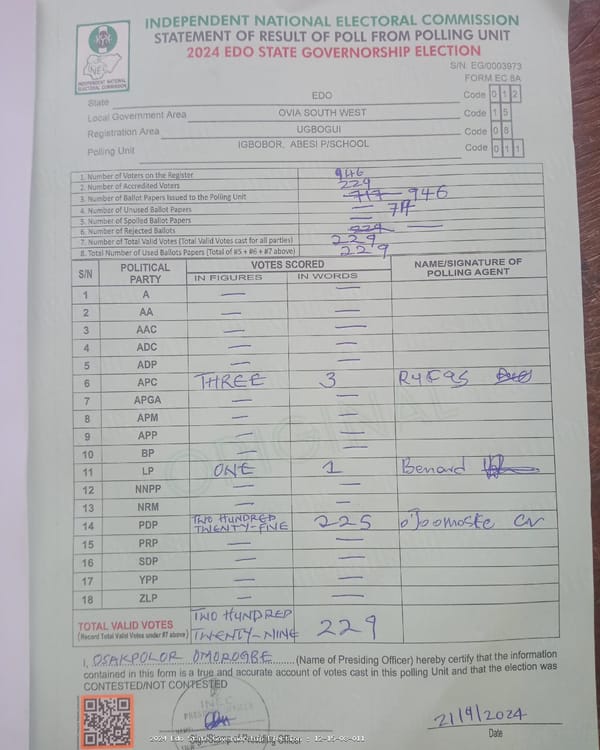 INDEPENDENT NATIONAL ELECTORAL COMMISSION
STATEMENT OF RESULT OF POLL FROM POLLING UNIT
2024 EDO STATE GOVERNORSHIP ELECTION
INEC
INDEPENDENT NATIONAL
ELECTORAL COMMISSION
S/N: EG/0003973
FORM EC 8A
State EDO Code 0 1 2
Local Government Area OVIA SOUTH WEST Code 1 5
Registration Area UGBOGUI Code 0 8
Polling Unit IGBOBOR, ABESI P/SCHOOL Code 0 1 1
1. Number of Voters on the Register 946
2. Number of Accredited Voters 229
3. Number of Ballot Papers Issued to the Polling Unit 717 946
4. Number of Unused Ballot Papers — 717
5. Number of Spoiled Ballot Papers —
6. Number of Rejected Ballots 229 —
7. Number of Total Valid Votes (Total Valid Votes cast for all parties) 229
8. Total Number of Used Ballots Papers (Total of #5 + #6 + #7 above) 229
S/N POLITICAL PARTY VOTES SCORED NAME/SIGNATURE OF POLLING AGENT
IN FIGURES IN WORDS
1 A — —
2 AA — —
3 AAC — —
4 ADC — —
5 ADP — —
6 APC THREE 3
7 APGA — —
8 APM — —
9 APP — —
10 BP — —
11 LP ONE 1 Benard
12 NNPP — —
13 NRM — —
14 PDP TWO HUNDRED TWENTY-FIVE 225
15 PRP — —
16 SDP — —
17 YPP — —
18 ZLP — —
TOTAL VALID VOTES TWO HUNDRED
(Record Total Valid Votes under #7 above) TWENTY-NINE 229
ORIGINAL
I, OSAKPOLOR OMOROGBE ...... (Name of Presiding Officer) hereby certify that the information
contained in this form is a true and accurate account of votes cast in this polling Unit and that the election was
CONTESTED/NOT CONTESTED
INEC
21/9/2024
Date